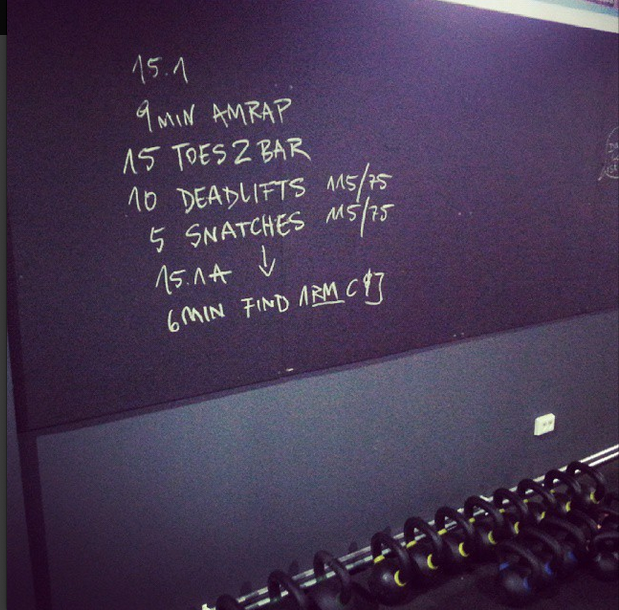 15.1
9 MIN AMRAP
15 TOES 2 BAR
10 DEADLIFTS 115/75
5 SNATCHES 115/75
↓
15.1A
6 MIN FIND 1RM C&J